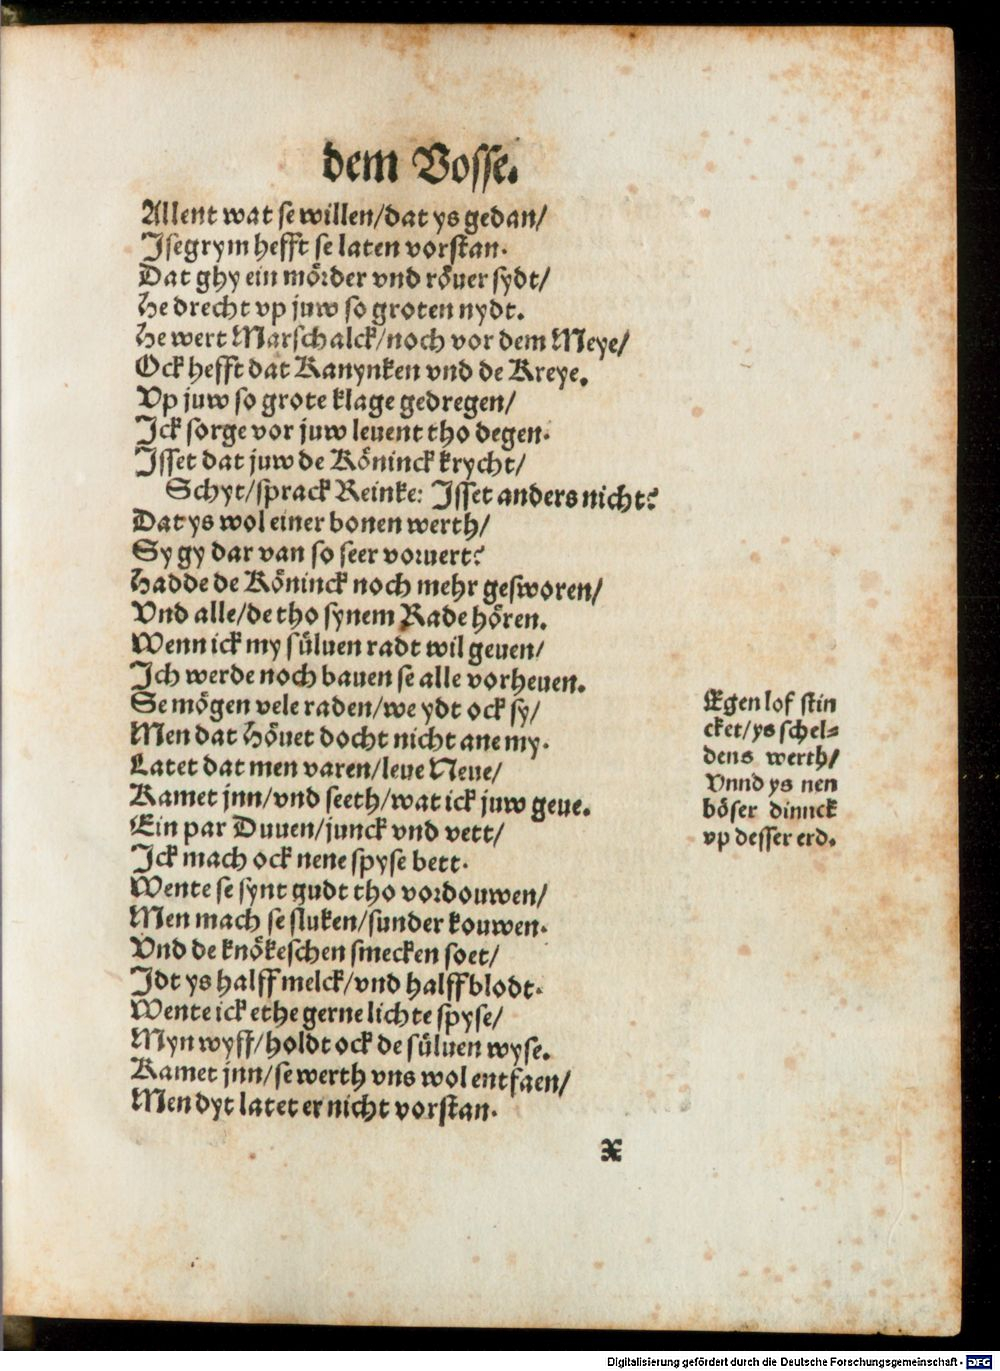 dem Vosse.
Allent wat se willen/dat ys gedan/
Isegrym hefft se laten vorstan.
Dat ghy ein mörder vnd röuer sydt/
He drecht vp juw so groten nydt.
He wert Marschalck/noch vor dem Meye/
Ock hefft dat Kanynken vnd de Kreye.
Vp juw so grote klage gedregen/
Ick sorge vor juw leuent tho degen.
Isset dat juw de Köninck krycht/
Schyt/sprack Reinke: Isset anders nicht?
Dat ys wol einer bonen werth/
Sy gy dar van so seer voruert?
Hadde de Köninck noch mehr gesworen/
Vnd alle/de tho synem Rade hören.
Wenn ick my süluen radt wil geuen/
Ich werde noch bauen se alle vorheuen.
Se mögen vele raden/we ydt ock sy/
Men dat Höuet docht nicht ane my.
Latet dat men varen/leue Neue/
Kamet jnn/vnd seeth/wat ick juw geue.
Ein par Duuen/junck vnd vett/
Ick mach ock nene spyse bett.
Wente se synt gudt tho vordouwen/
Men mach se sluken/sunder kouwen.
Vnd de knökeschen smecken soet/
Idt ys halff melck/vnd halff blodt.
Wente ick ethe gerne lichte spyse/
Myn wyff/holdt ock de süluen wyse.
Kamet jnn/se werth vns wol entfaen/
Men dyt latet er nicht vorstan.
Egen lof stin
cket/ys schel=
dens werth/
Vnnd ys nen
böser dinnck
vp desser erd.
X
Digitalisierung gefördert durch die Deutsche Forschungsgemeinschaft - DFG